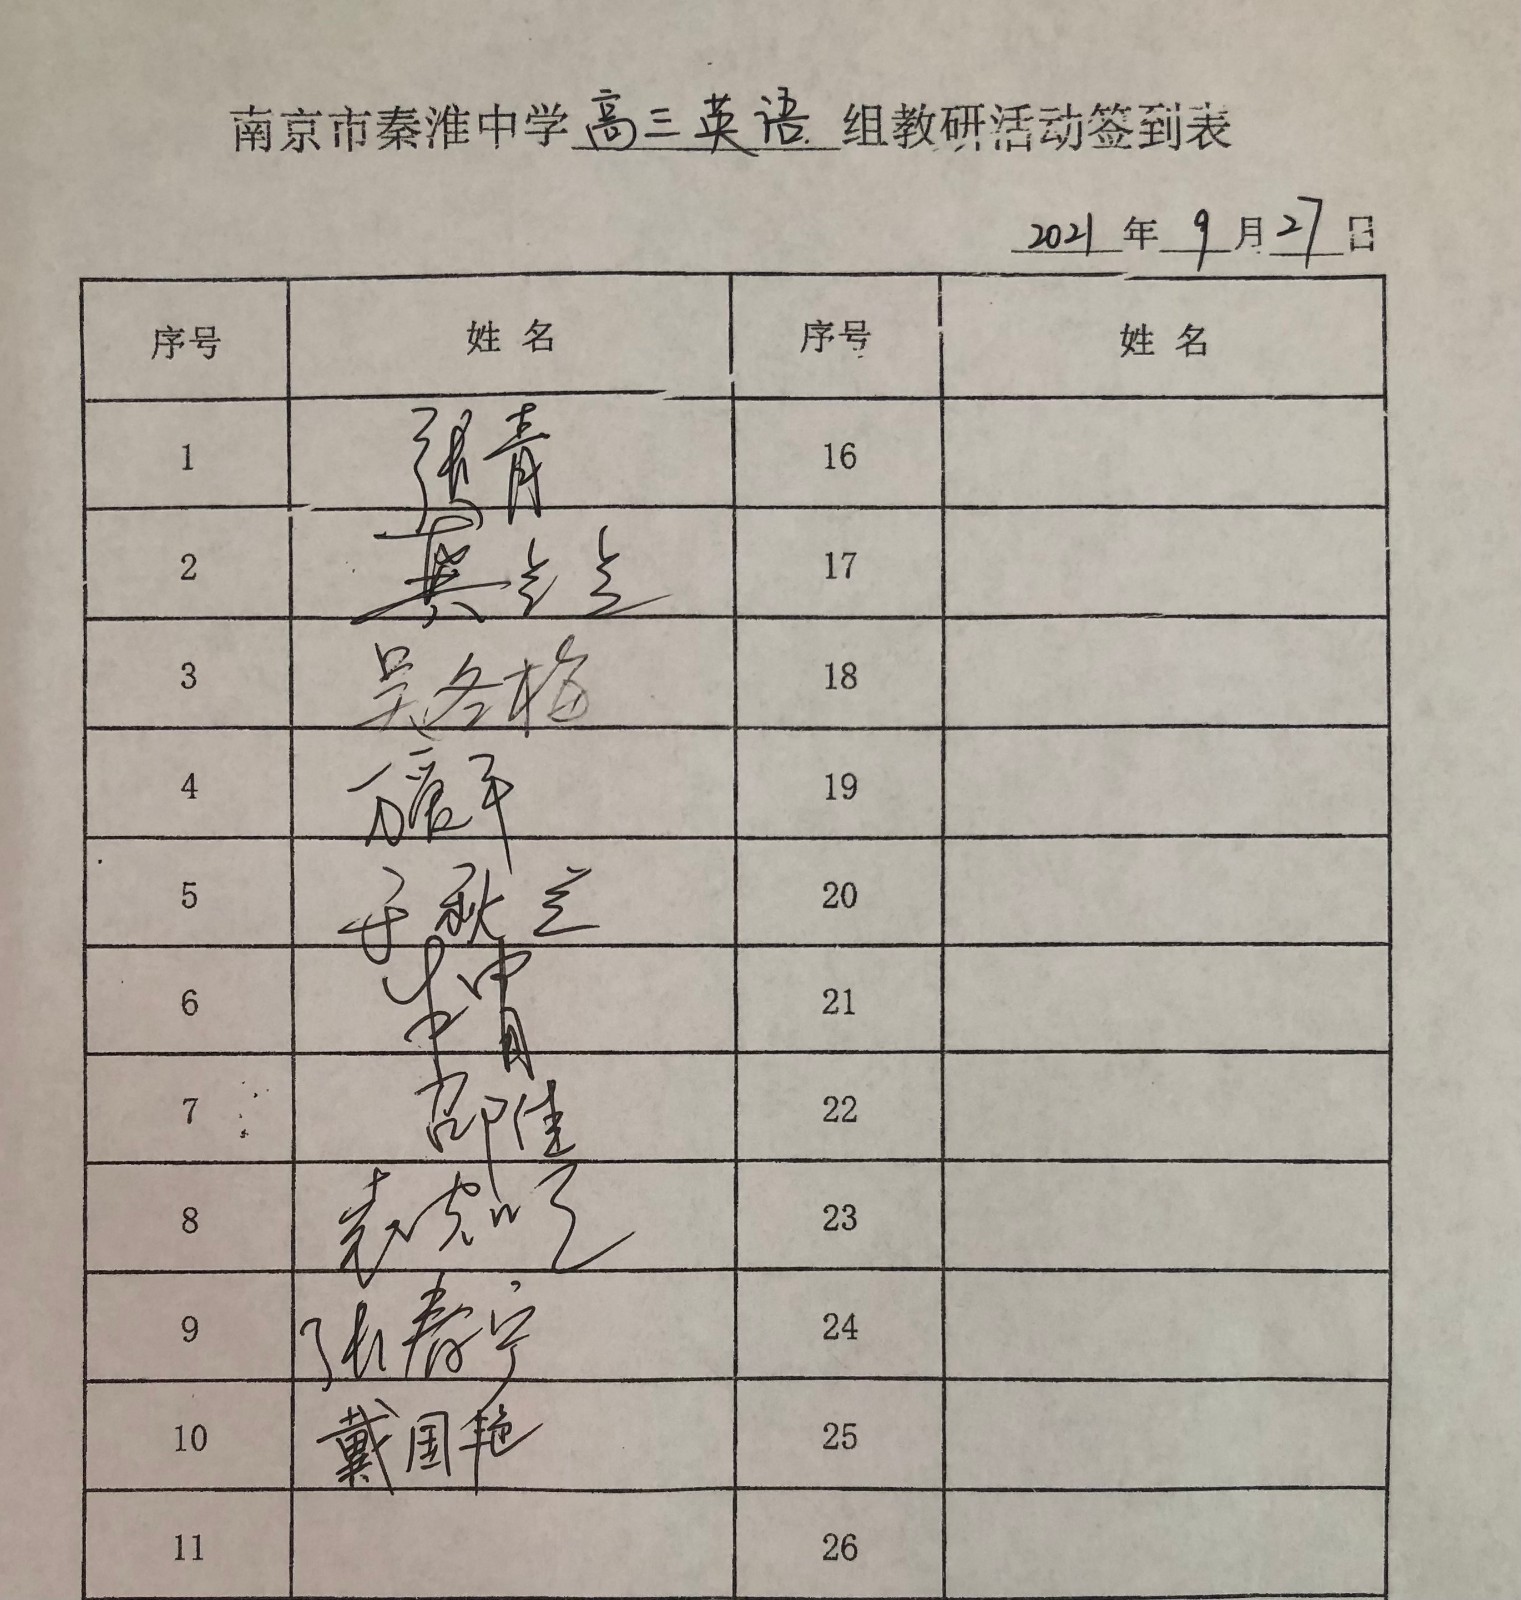 南京市秦淮中学高三英语组教研活动签到表
2021年9月27日
序号 姓名 序号 姓名
1 张青 16
2 17
3 吴冬梅 18
4 19
5 于秋兰 20
6 21
7 邵佳 22
8 23
9 张春宁 24
10 戴国艳 25
11 26